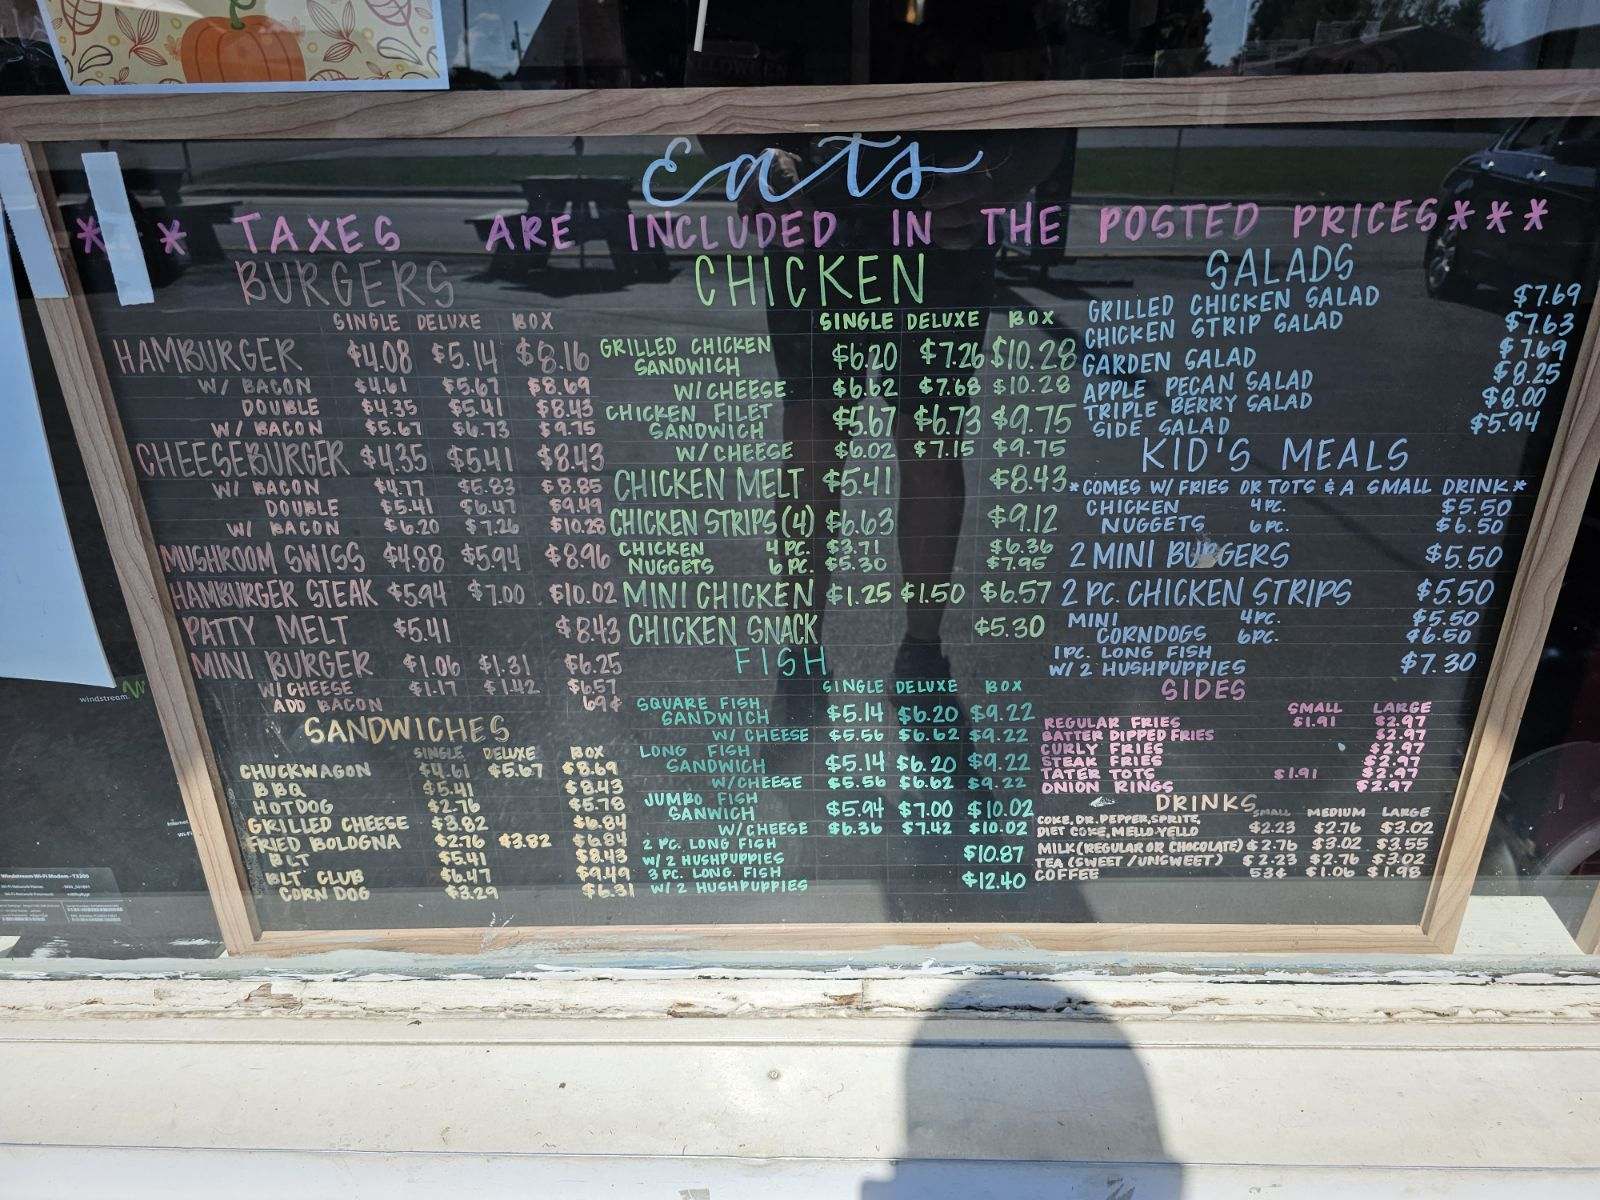 Eats
*** TAXES ARE INCLUDED IN THE POSTED PRICES***
BURGERS
SINGLE DELUXE BOX
HAMBURGER $4.08 $5.14 $8.16
W/ BACON $4.61 $5.67 $8.69
DOUBLE $4.35 $5.41 $8.43
W/ BACON $5.67 $6.73 $9.75
CHEESEBURGER $4.35 $5.41 $8.43
W/ BACON $4.77 $5.83 $8.85
DOUBLE $5.41 $6.47 $9.49
W/ BACON $6.20 $7.26 $10.28
MUSHROOM SWISS $4.88 $5.94 $8.96
HAMBURGER STEAK $5.94 $7.00 $10.02
PATTY MELT $5.41 $8.43
MINI BURGER $1.06 $1.31 $6.25
W/ CHEESE $1.17 $1.42 $6.57
ADD BACON 69¢
SANDWICHES
SINGLE DELUXE BOX
CHUCKWAGON $4.61 $5.67 $8.69
BBQ $5.41 $8.43
HOTDOG $2.76 $5.78
GRILLED CHEESE $3.82 $6.84
FRIED BOLOGNA $2.76 $3.82 $6.84
BLT $5.41 $8.43
BLT CLUB $6.47 $9.49
CORN DOG $3.29 $6.31
CHICKEN
SINGLE DELUXE BOX
GRILLED CHICKEN
SANDWICH $6.20 $7.26 $10.28
W/CHEESE $6.62 $7.68 $10.28
CHICKEN FILET
SANDWICH $5.67 $6.73 $9.75
W/CHEESE $6.02 $7.15 $9.75
CHICKEN MELT $5.41 $8.43
CHICKEN STRIPS (4) $6.63 $9.12
CHICKEN 4 PC. $3.71 $6.36
NUGGETS 6 PC. $5.30 $7.95
MINI CHICKEN $1.25 $1.50 $6.57
CHICKEN SNACK $5.30
FISH
SINGLE DELUXE BOX
SQUARE FISH
SANDWICH $5.14 $6.20 $9.22
W/ CHEESE $5.56 $6.62 $9.22
LONG FISH
SANDWICH $5.14 $6.20 $9.22
W/CHEESE $5.56 $6.62 $9.22
JUMBO FISH
SANWICH $5.94 $7.00 $10.02
W/CHEESE $6.36 $7.42 $10.02
2 PC. LONG FISH
W/ 2 HUSHPUPPIES $10.87
3 PC. LONG FISH
W/ 2 HUSHPUPPIES $12.40
SALADS
GRILLED CHICKEN SALAD $7.69
CHICKEN STRIP SALAD $7.63
GARDEN SALAD $7.69
APPLE PECAN SALAD $8.25
TRIPLE BERRY SALAD $8.00
SIDE SALAD $5.94
KID'S MEALS
*COMES W/ FRIES OR TOTS & A SMALL DRINK*
CHICKEN 4 PC. $5.50
NUGGETS 6 PC. $6.50
2 MINI BURGERS $5.50
2 PC. CHICKEN STRIPS $5.50
MINI 4PC. $5.50
CORNDOGS 6PC. $6.50
1PC. LONG FISH
W/ 2 HUSHPUPPIES $7.30
SIDES
SMALL LARGE
REGULAR FRIES $1.91 $2.97
BATTER DIPPED FRIES $2.97
CURLY FRIES $2.97
STEAK FRIES $2.97
TATER TOTS $1.91 $2.97
ONION RINGS $2.97
DRINKS
SMALL MEDIUM LARGE
COKE, DR. PEPPER, SPRITE,
DIET COKE, MELLO-YELLO $2.23 $2.76 $3.02
MILK (REGULAR OR CHOCOLATE) $2.76 $3.02 $3.55
TEA (SWEET / UNSWEET) $2.23 $2.76 $3.02
COFFEE 53¢ $1.06 $1.98
windstream
Windstream Wi-Fi Modem - T3200